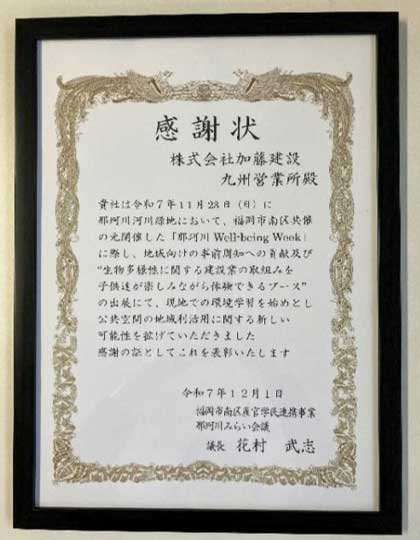 感謝状
株式会社加藤建設
九州営業所殿
貴社は令和7年11月23日（日）に
那珂川河川緑地において、福岡市南区共催
の元開催した「那珂川Well-being Week」
に際し、地域向けの事前周知への貢献及び
“生物多様性に関する建設業の取組みを
子供達が楽しみながら体験できるブース”
の出展にて、現地での環境学習を始めとし
公共空間の地域利活用に関する新しい
可能性を拡げていただきました
感謝の証としてこれを表彰いたします
令和7年12月1日
福岡市南区産官学民連携事業
那珂川みらい会議
議長 花村 武志